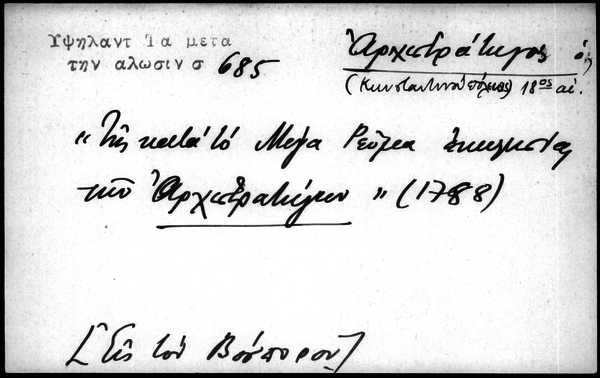 Υψηλαντ Τα μετα
την αλωσιν σ 685
Ἀρχιστράτηγος ὁ,
(Κωνσταντινούπολις) 18ος αἰ.
"Τῆς κατὰ τὸ Μέγα Ρεῦμα ἐκκλησίας
τῶν Ἀρχιστρατήγων" (1788)
[Εἰς τὸν Βόσπορον]